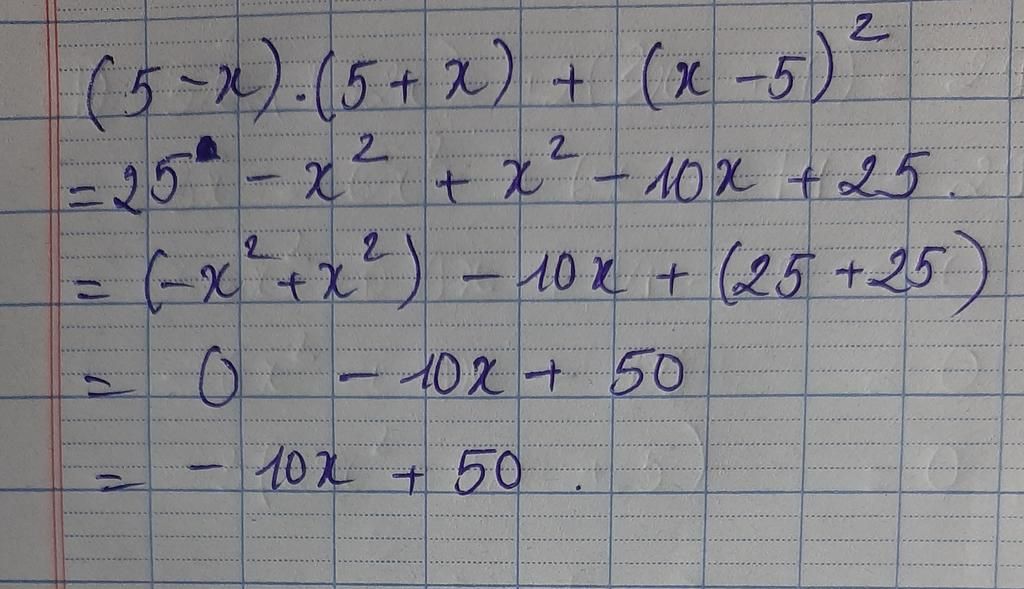 (5 - x).(5 + x) + (x - 5)²
= 25 - x² + x² - 10x + 25.
= (-x² + x²) - 10x + (25 + 25)
= 0 - 10x + 50
= - 10x + 50.